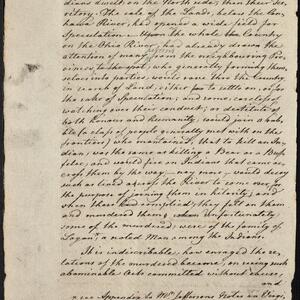 dians dwelt on the North side, than their ter-
ritory. The sale of the Lands, below the Can-
hawa River, had opened a wide field for
speculation. Upon the whole the Country
on the Ohio River, had already drawn the
attention of many from the neighbouring Pro-
vinces to the spot, who generally forming them-
selves into parties, would rove thro' the Country
in search of Land, either for to settle on, or for
the sake of speculation; and some, careless of
watching over their conduct, or destitute of
both honour and humanity, would join a rab-
ble (a class of people generally met with on the
frontiers) who maintained, that to kill an In-
dian, was the same as killing a Bear or a Buf-
feloe, and would fire on Indians that came a-
cross them by the way – nay more, would decoy
such as lived across the River to come over, for
the purpose of joining them in hilarity, and
when these had complied, they fell on them
and murdered them. Unfortunately,
some of the murdered were of the family of
Logan, a noted Man among the Indians.
It is indescribable, how enraged the re-
lations of the murdered became, on seeing such
abominable Acts committed without cause, and
see Appendix to Mr Jeffersons Notes on Virg.